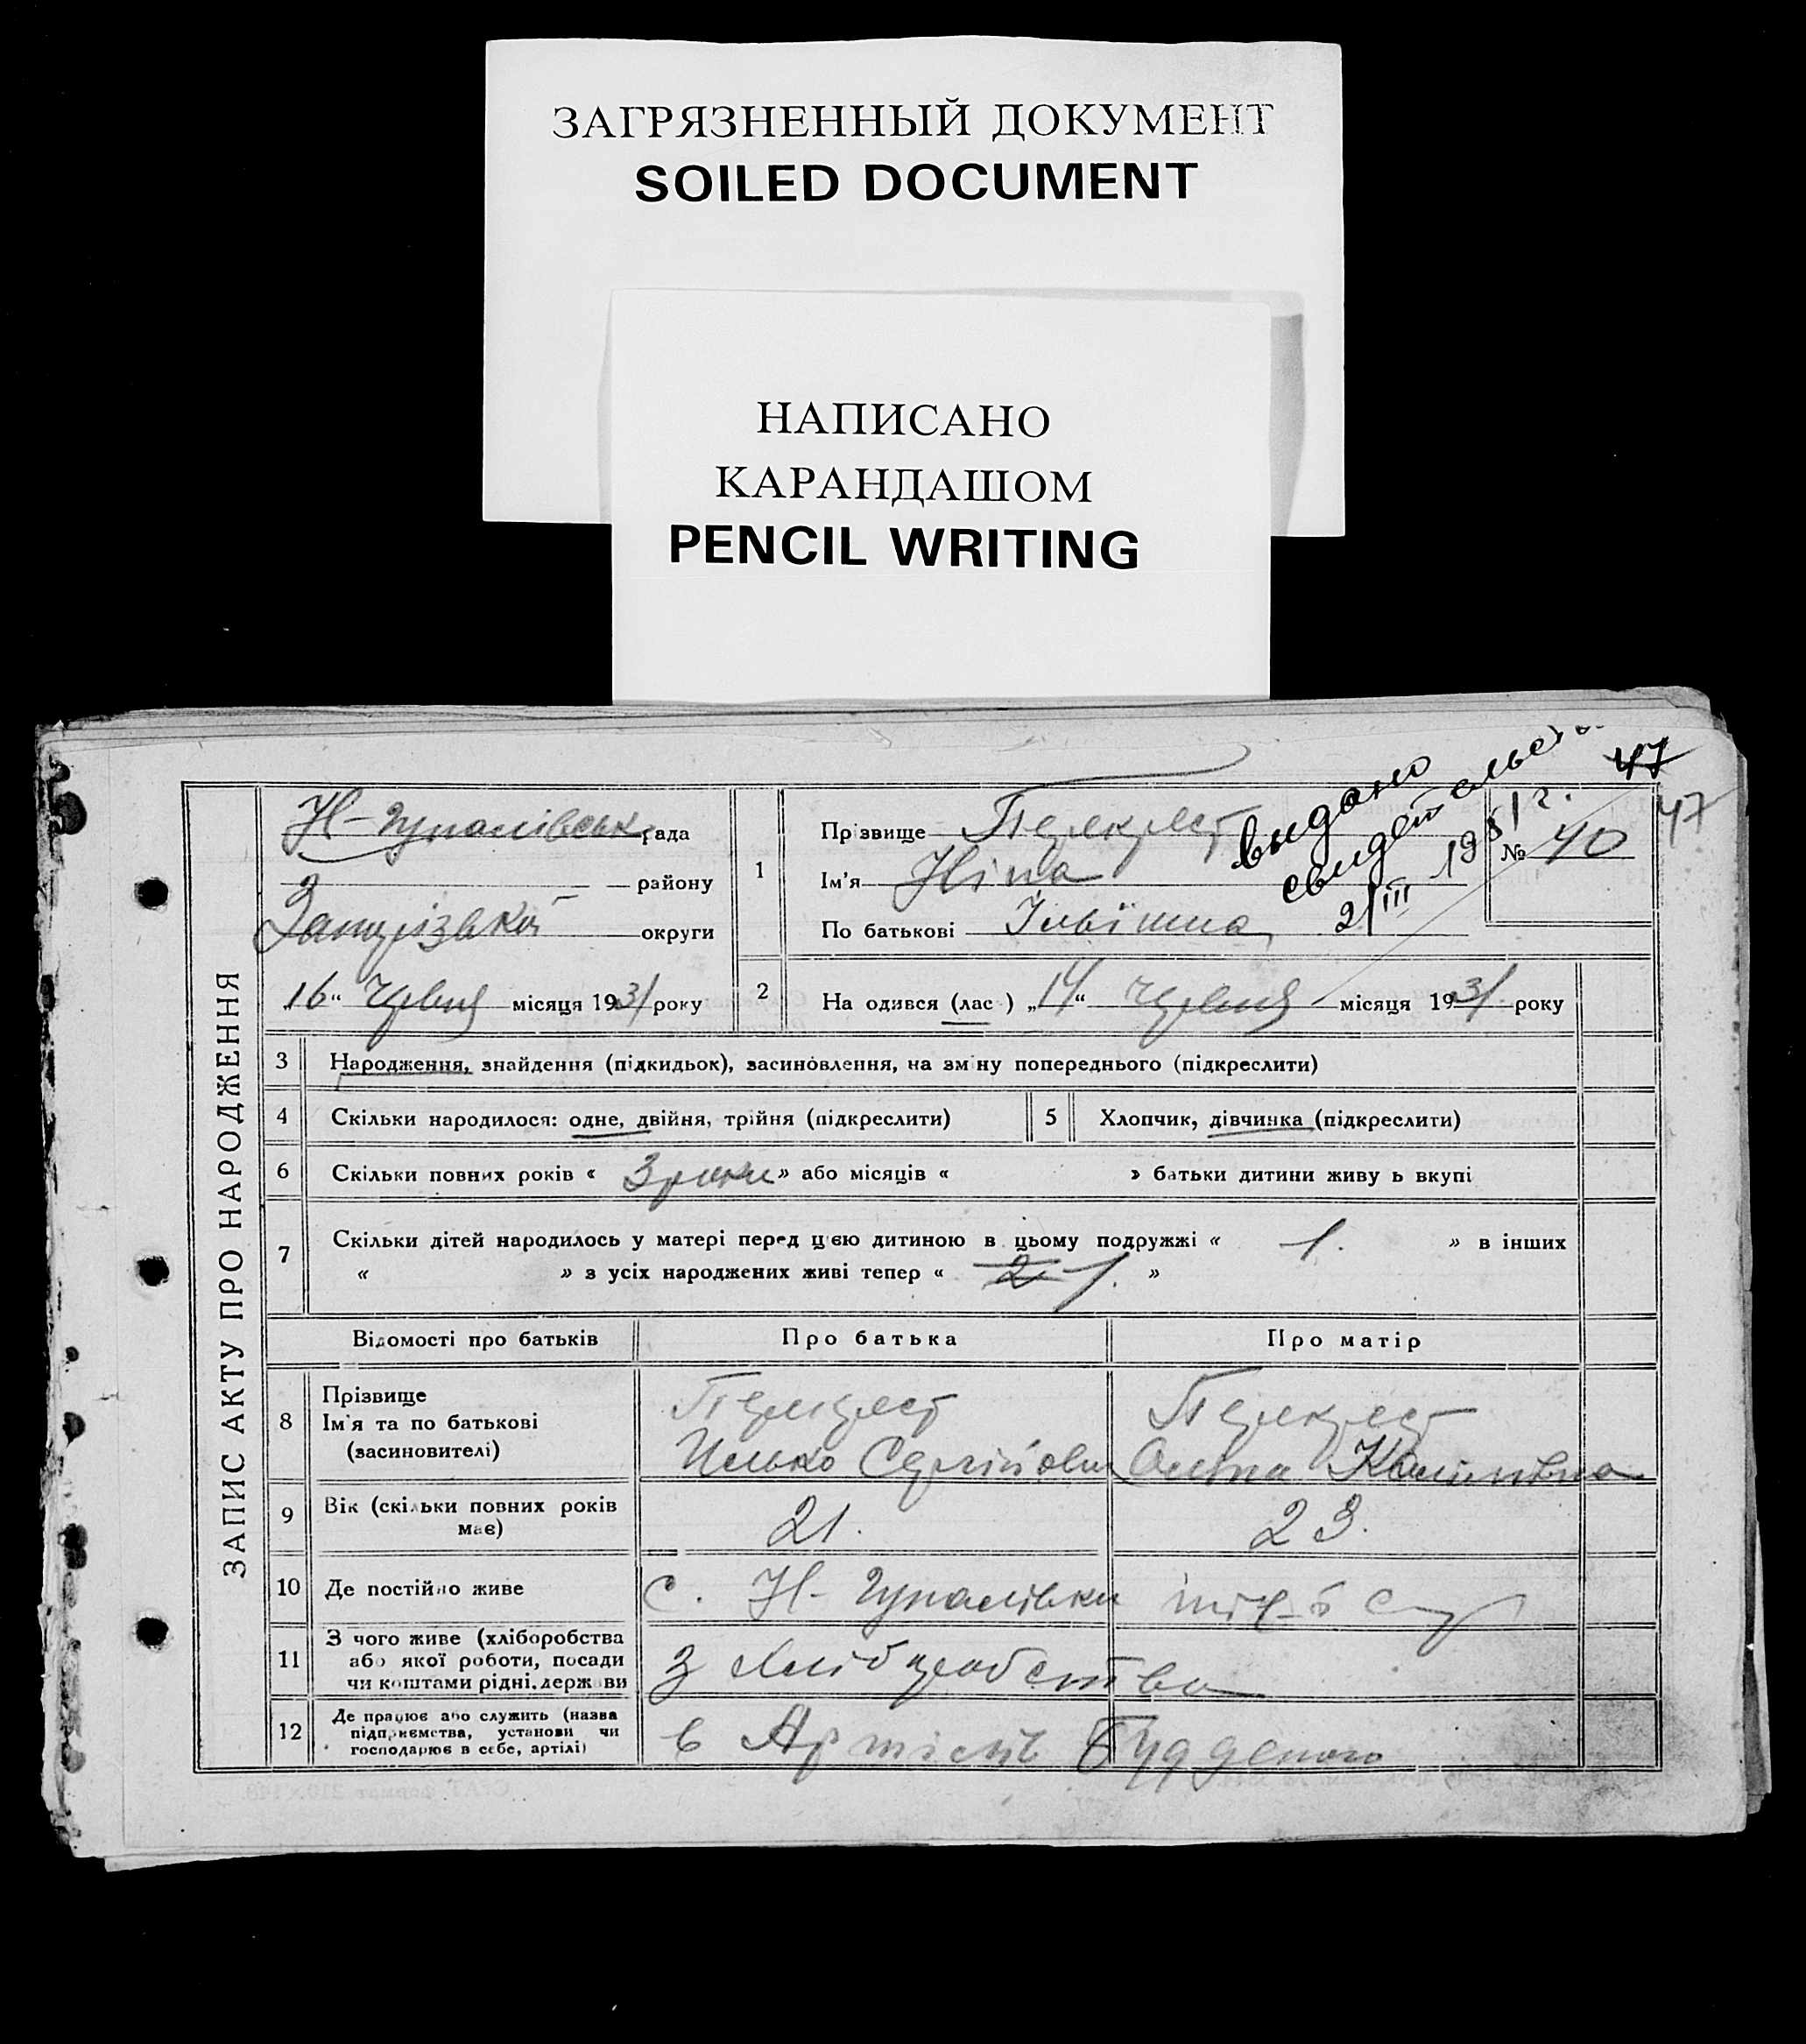 ЗАГРЯЗНЕННЫЙ ДОКУМЕНТ
SOILED DOCUMENT
НАПИСАНО
КАРАНДАШОМ
PENCIL WRITING
ЗАПИС АКТУ ПРО НАРОДЖЕННЯ
47
47
Н-Гупалівськ рада
району
Запорізької округи
„16“ Червня місяця 1931 року
1
Прізвище Перекрест
Ім'я Ніна
По батькові Ільївна
видано
свидетельство
2/III 1951 г.
№ 40
2
На одився (лас ) „14“ червня місяця 1931 року
3 Народження, знайдення (підкидьок), засиновлення, на зм ну попереднього (підкреслити)
4 Скільки народилося: одне, двійня, трійня (підкреслити) 5 Хлопчик, дівчинка (підкреслити)
6 Скільки повних років « 3 роки » або місяців « » батьки дитини живу ь вкупі
7 Скільки дітей народилось у матері перед цією дитиною в цьому подружжі « 1. » в інших
« » з усіх народжених живі тепер « 2 1. »
Відомості про батьків Про батька Про матір
8 Прізвище
Ім'я та по батькові
(засиновителі)
Перекрест Перекрест
Илько Сергійович
9 Вік (скільки повних років
має)
21. 23.
10 Де постійно живе с. Н-Гупалівки
11 З чого живе (хліборобства
або якої роботи, посади
чи коштами рідні, держ ви
з Хліборобства
12 Де працює або служить (назва
підприємства, установи чи
господарює в себе, артілі)
в Артілі Будденого